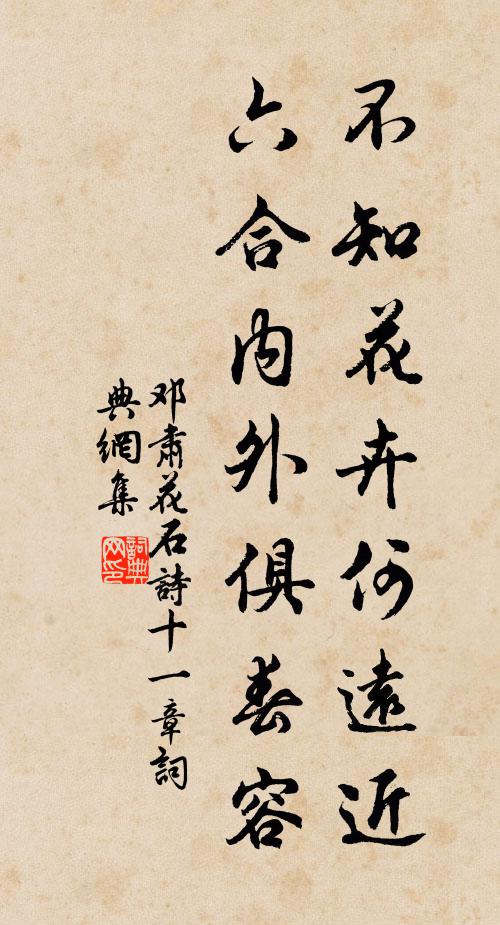 不知花卉何遠近
六合内外俱春容
邓肅花石詩十一章詞
典網集
詞典网印